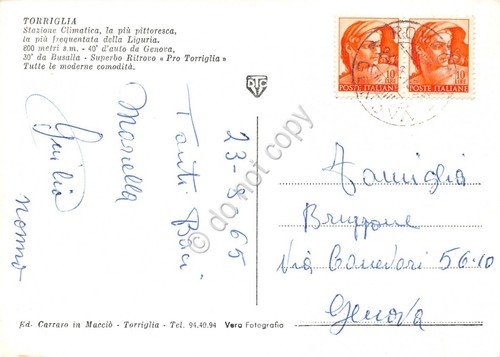 TORRIGLIA
Stazione Climatica, la più pittoresca,
la più frequentata della Liguria.
800 metri s.m. - 40' d'auto da Genova,
30' da Busalla - Superbo Ritrovo « Pro Torriglia »
Tutte le moderne comodità.
10
LIRE
POSTE ITALIANE
10
LIRE
POSTE ITALIANE
23-8-65
Tanti Baci
Mariella
Giulio
nonno
Famiglia
Bruzzone
Via Canevari 56-10
Genova
do not copy
Ed. Carraro in Macciò - Torriglia - Tel. 94.40.94 Vera Fotografia